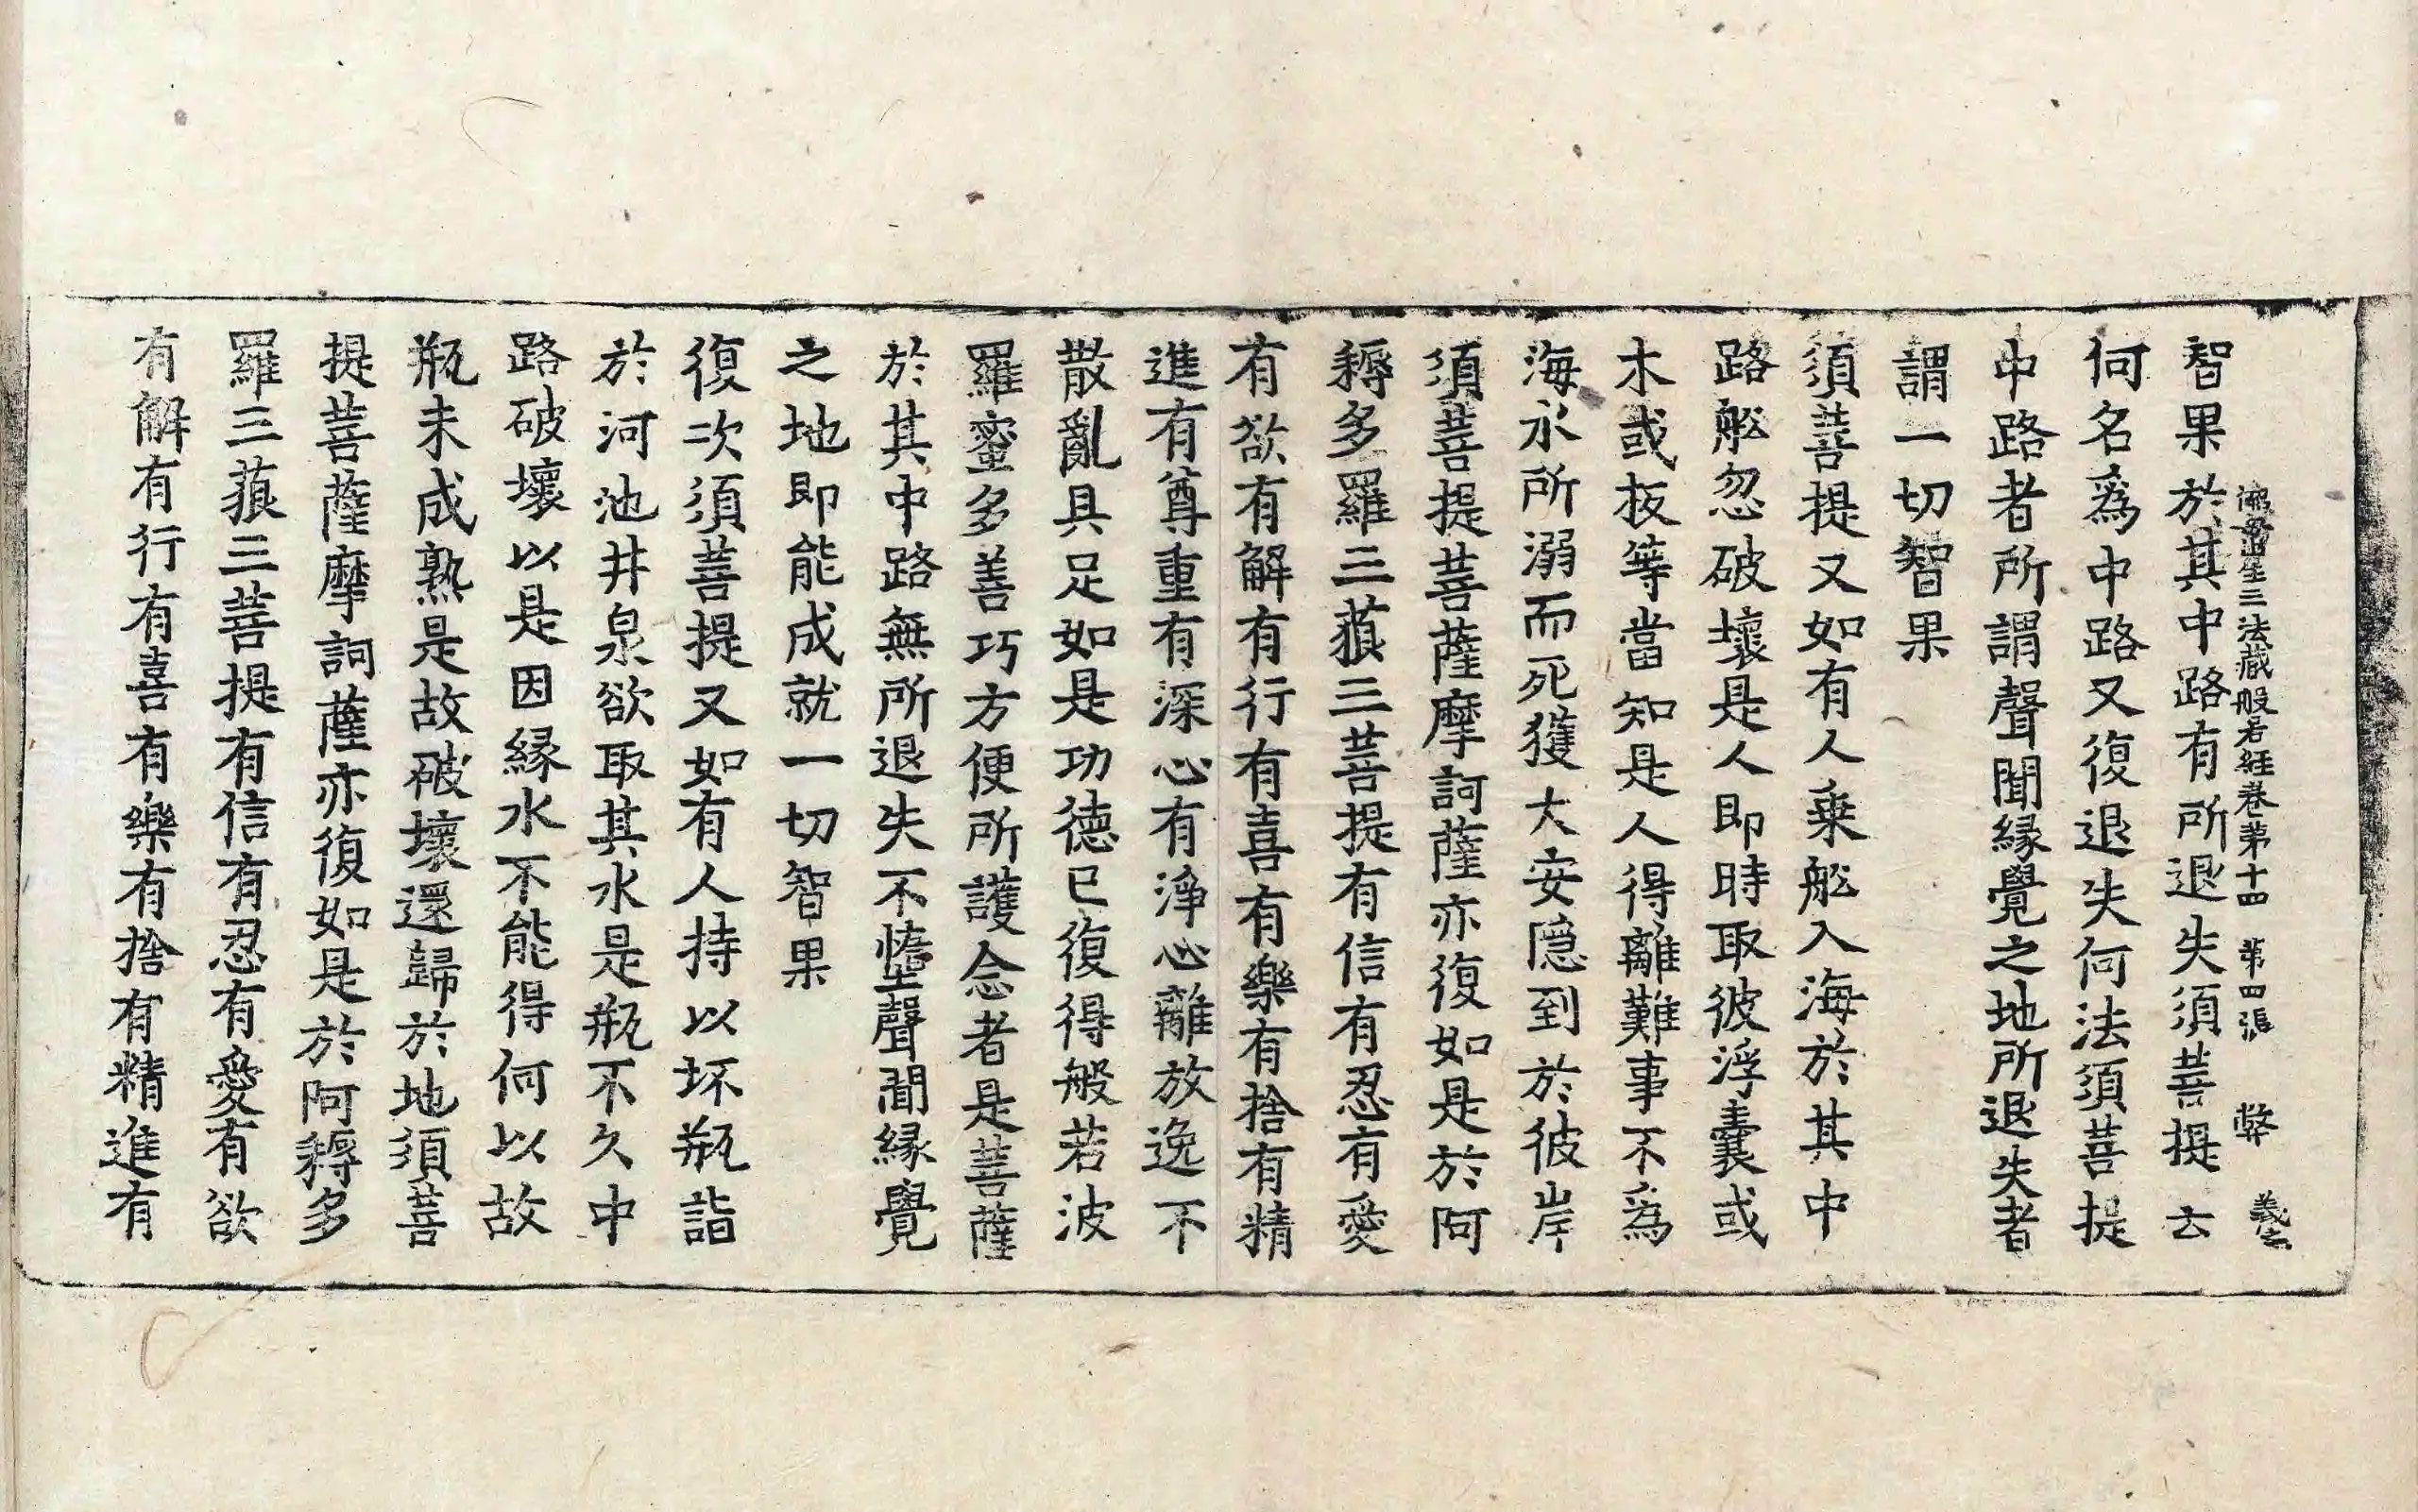 佛母出生三法藏般若經卷第十四 第四張 弊 義之
智果於其中路有所退失須菩提云
何名爲中路又復退失何法須菩提
中路者所謂聲聞緣覺之地所退失者
謂一切智果
須菩提又如有人乗舩入海於其中
路舩忽破壞是人即時取彼浮囊或
木或板等當知是人得離難事不爲
海水所溺而死獲大安隱到於彼岸
須菩提菩薩摩訶薩亦復如是於阿
耨多羅三藐三菩提有信有忍有愛
有欲有解有行有喜有樂有捨有精
進有尊重有深心有淨心離放逸不
散亂具足如是功德已復得般若波
羅蜜多善巧方便所護念者是菩薩
於其中路無所退失不墮聲聞緣覺
之地即能成就一切智果
復次須菩提又如有人持以坏瓶詣
於河池井泉欲取其水是瓶不久中
路破壞以是因緣水不能得何以故
瓶未成熟是故破壞還歸於地須菩
提菩薩摩訶薩亦復如是於阿耨多
羅三藐三菩提有信有忍有愛有欲
有解有行有喜有樂有捨有精進有